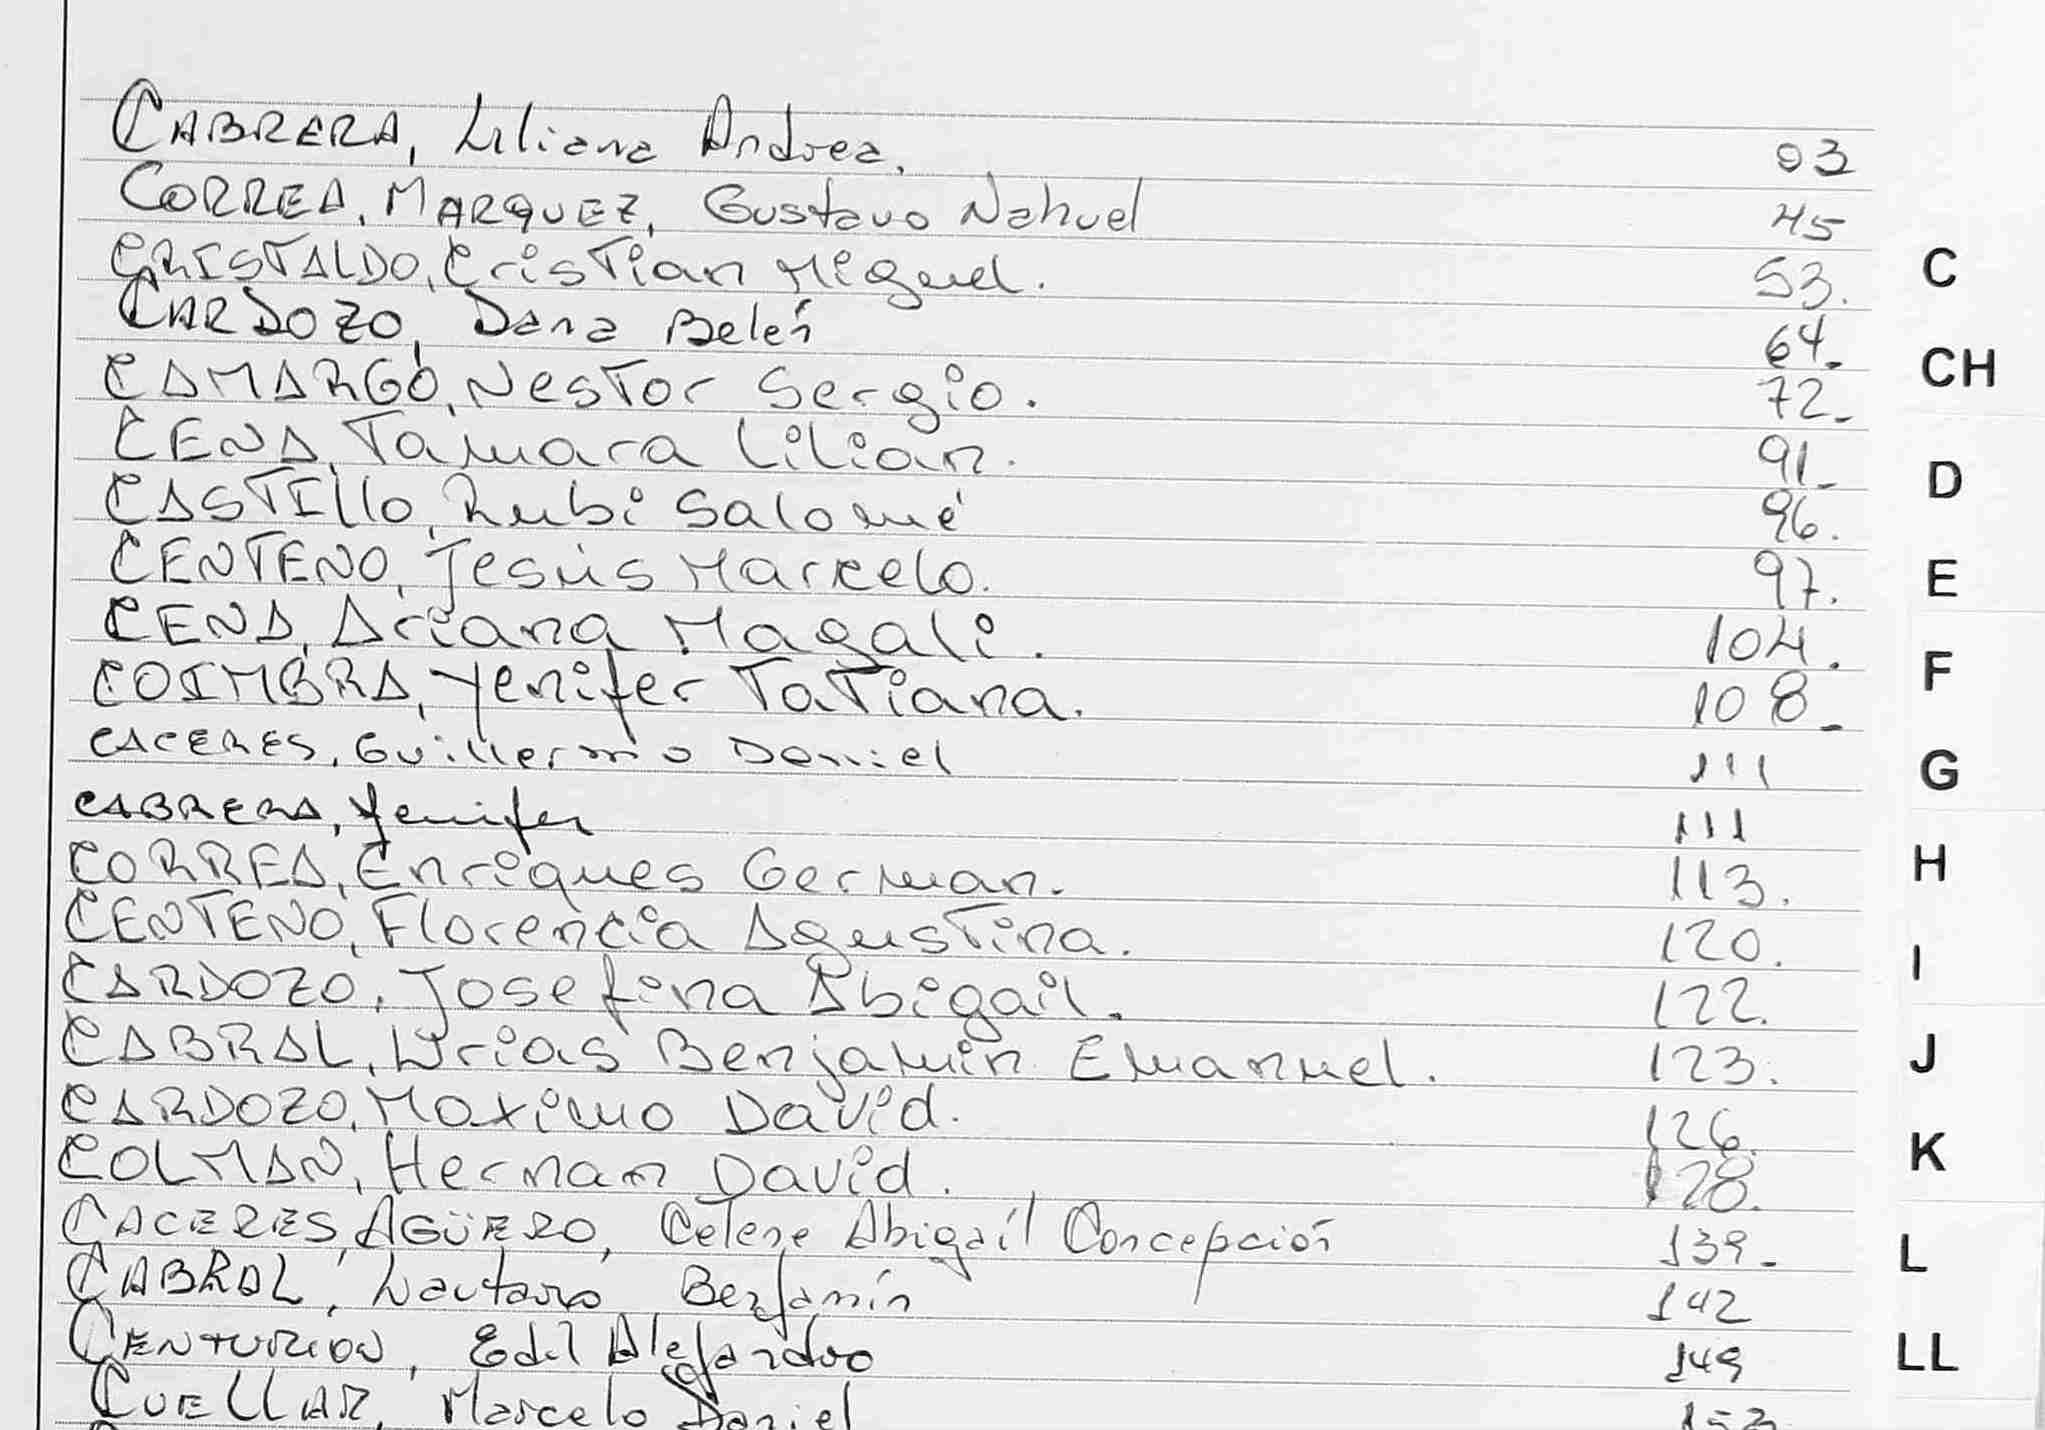 CABRERA, Liliana Andrea. 03
CORREA, MARQUEZ, Gustavo Nahuel 45
CRISTALDO, Cristian Miguel. 53.
C
CARDOZO, Dana Belén 64.
CH
CAMARGO, Nestor Sergio. 72.
CENA, Tamara Lilian. 91.
D
CASTILLO, Rubi Salomé 96.
CENTENO, Jesús Marcelo. 97.
E
CENA, Ariana Magali. 104.
F
COIMBRA, Yenifer Tatiana. 108.
CACERES, Guillermo Daniel 111
G
CABRERA, Yenifer 111
CORREA, Enriques German. 113.
H
CENTENO, Florencia Agustina. 120.
I
CARDOZO, Josefina Abigail. 122.
CABRAL, Urias Benjamin Emanuel. 123.
J
CARDOZO, Maximo David. 126.
K
COLMAN, Hernan David. 128.
CACERES, AGÜERO, Celene Abigaíl Concepción 139.
L
CABRAL, Lautaro Benjamín 142
CENTURION, Edil Alejandro 149
LL
CUELLAR, Marcelo Daniel